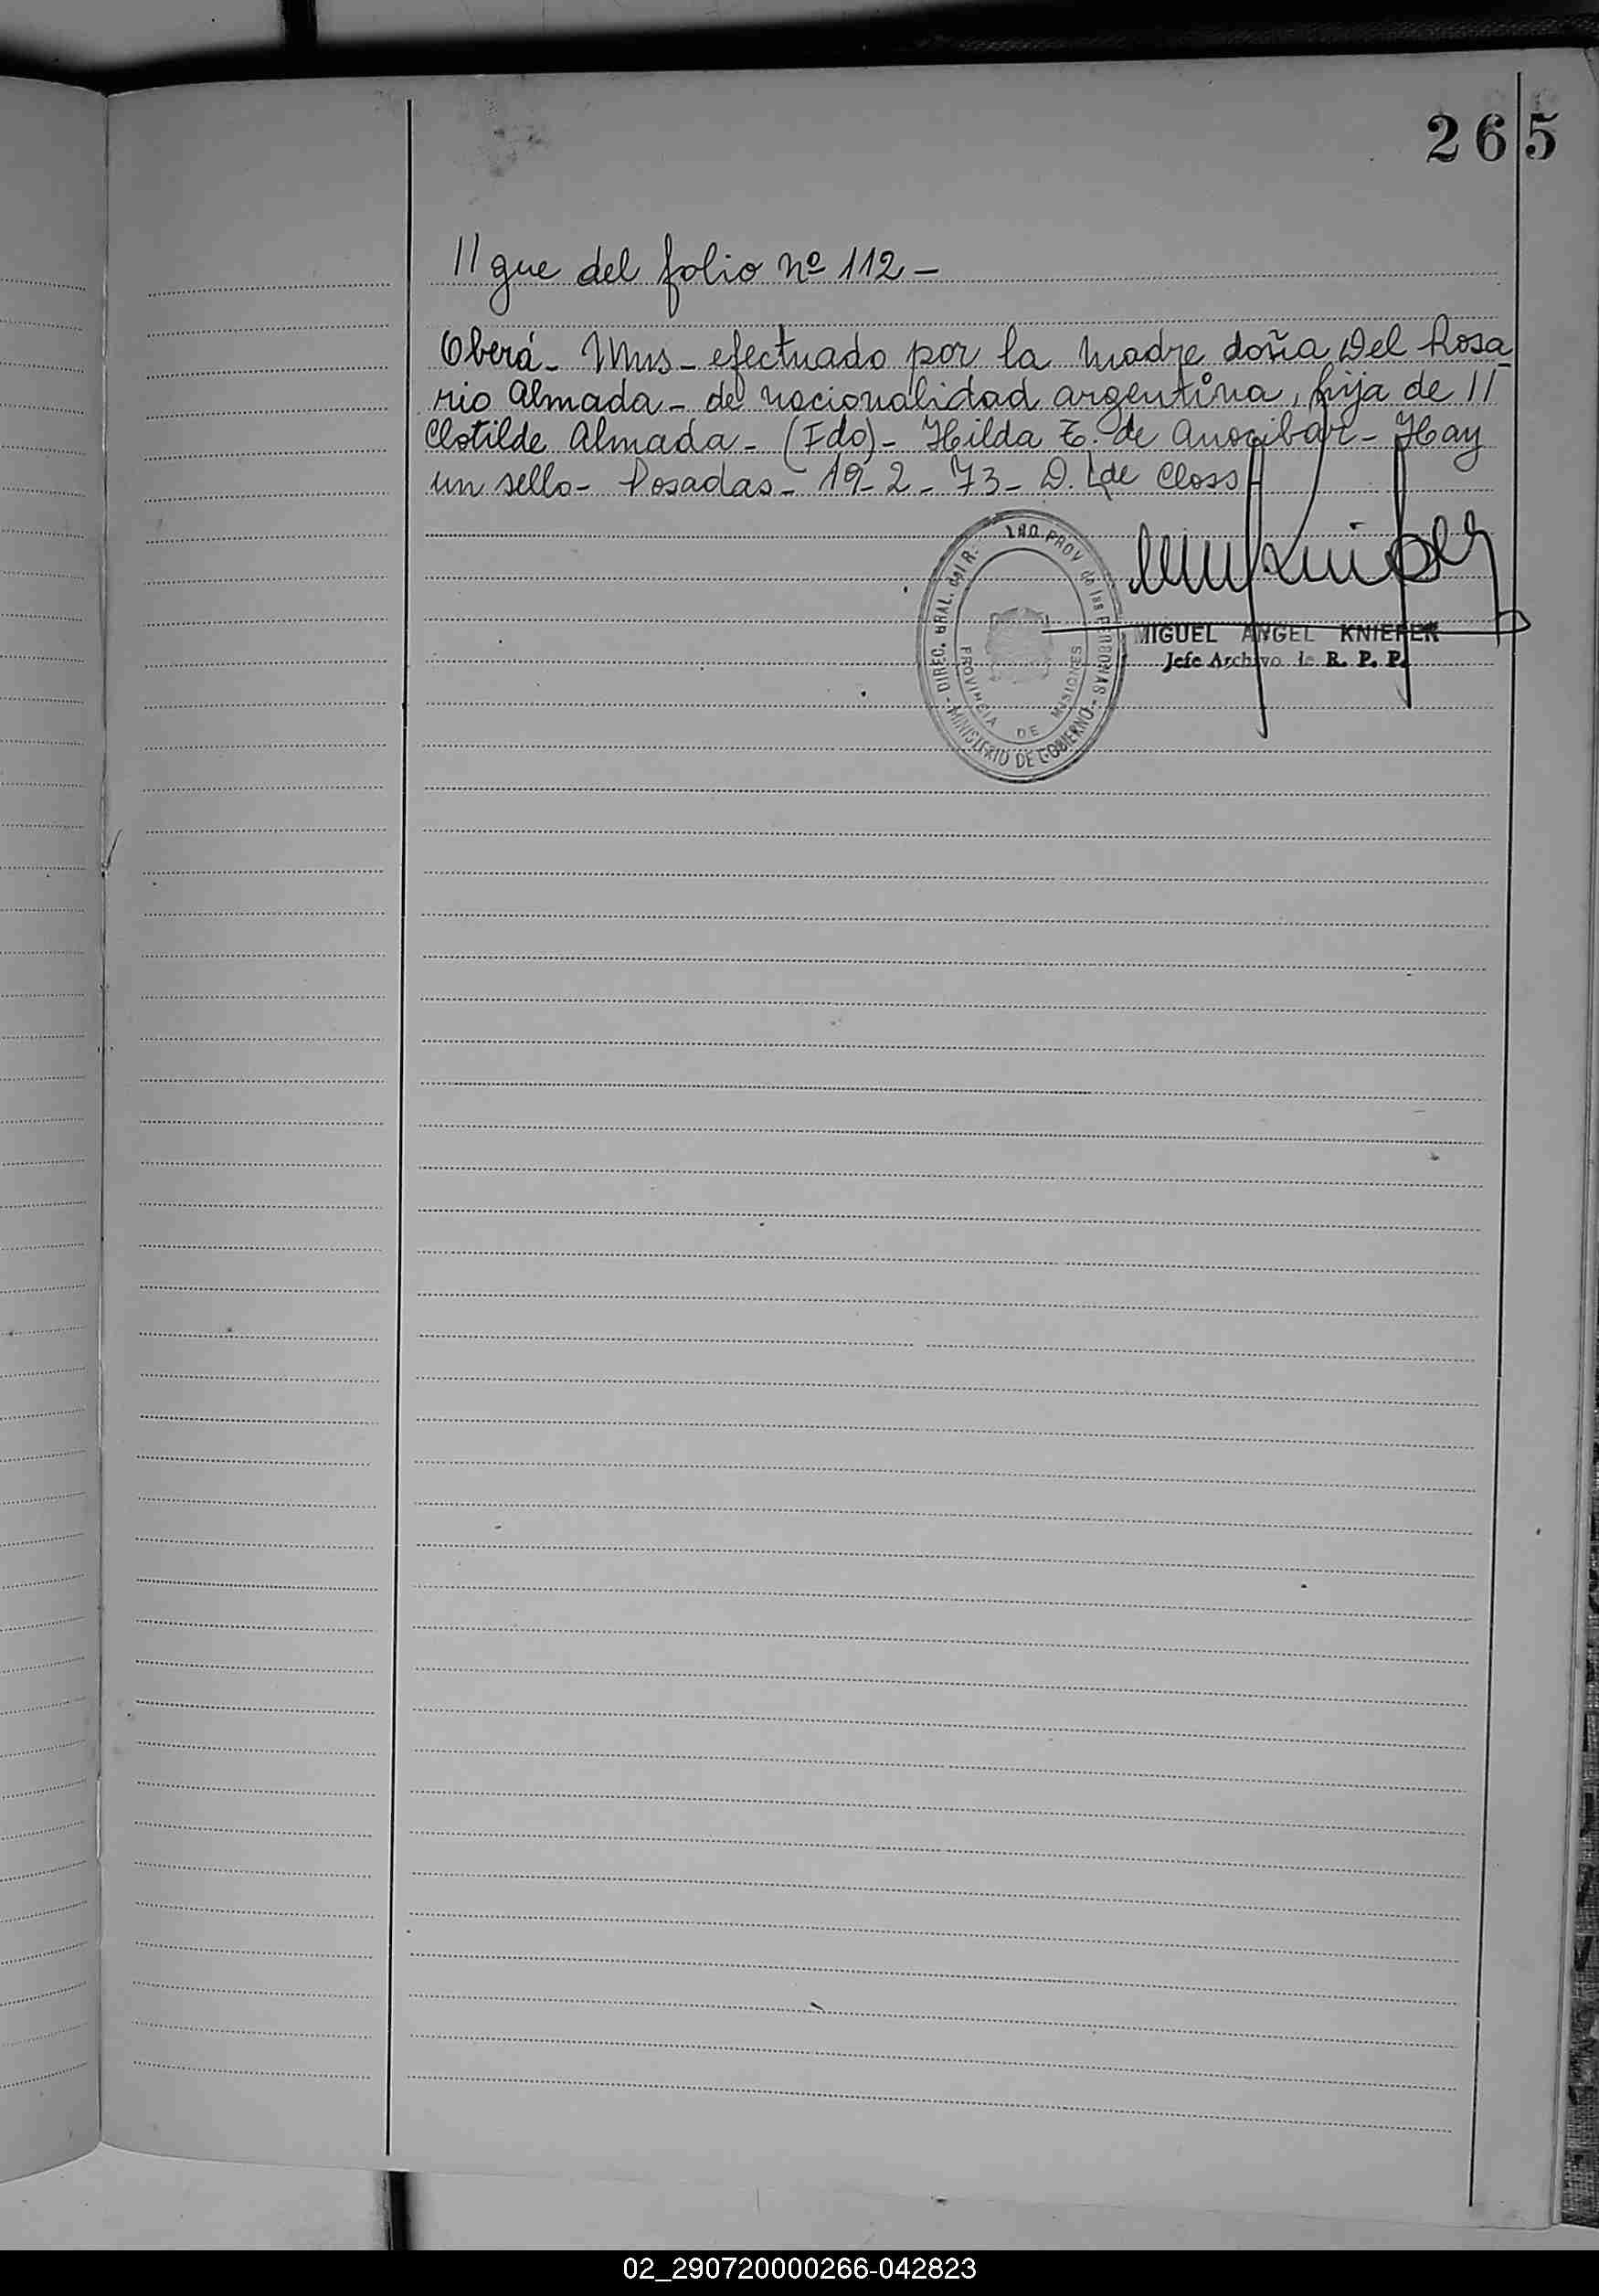 265
//gue del folio nº 112 -
Oberá - Mnes - efectuado por la madre doña Del Rosa
rio Almada - de nacionalidad argentina, hija de //
Clotilde Almada - (Fdo) - Hilda E. de Anocibar - Hay
un sello - Posadas - 19 - 2 - 73 - D. L. de Closs
DIREC. GRAL. del R. PROV. de las PERSONAS
PROVINCIA DE MISIONES
- MINISTERIO DE GOBIERNO -
MIGUEL ANGEL KNIEPER
Jefe Archivo de R. P. P.
02_290720000266-042823